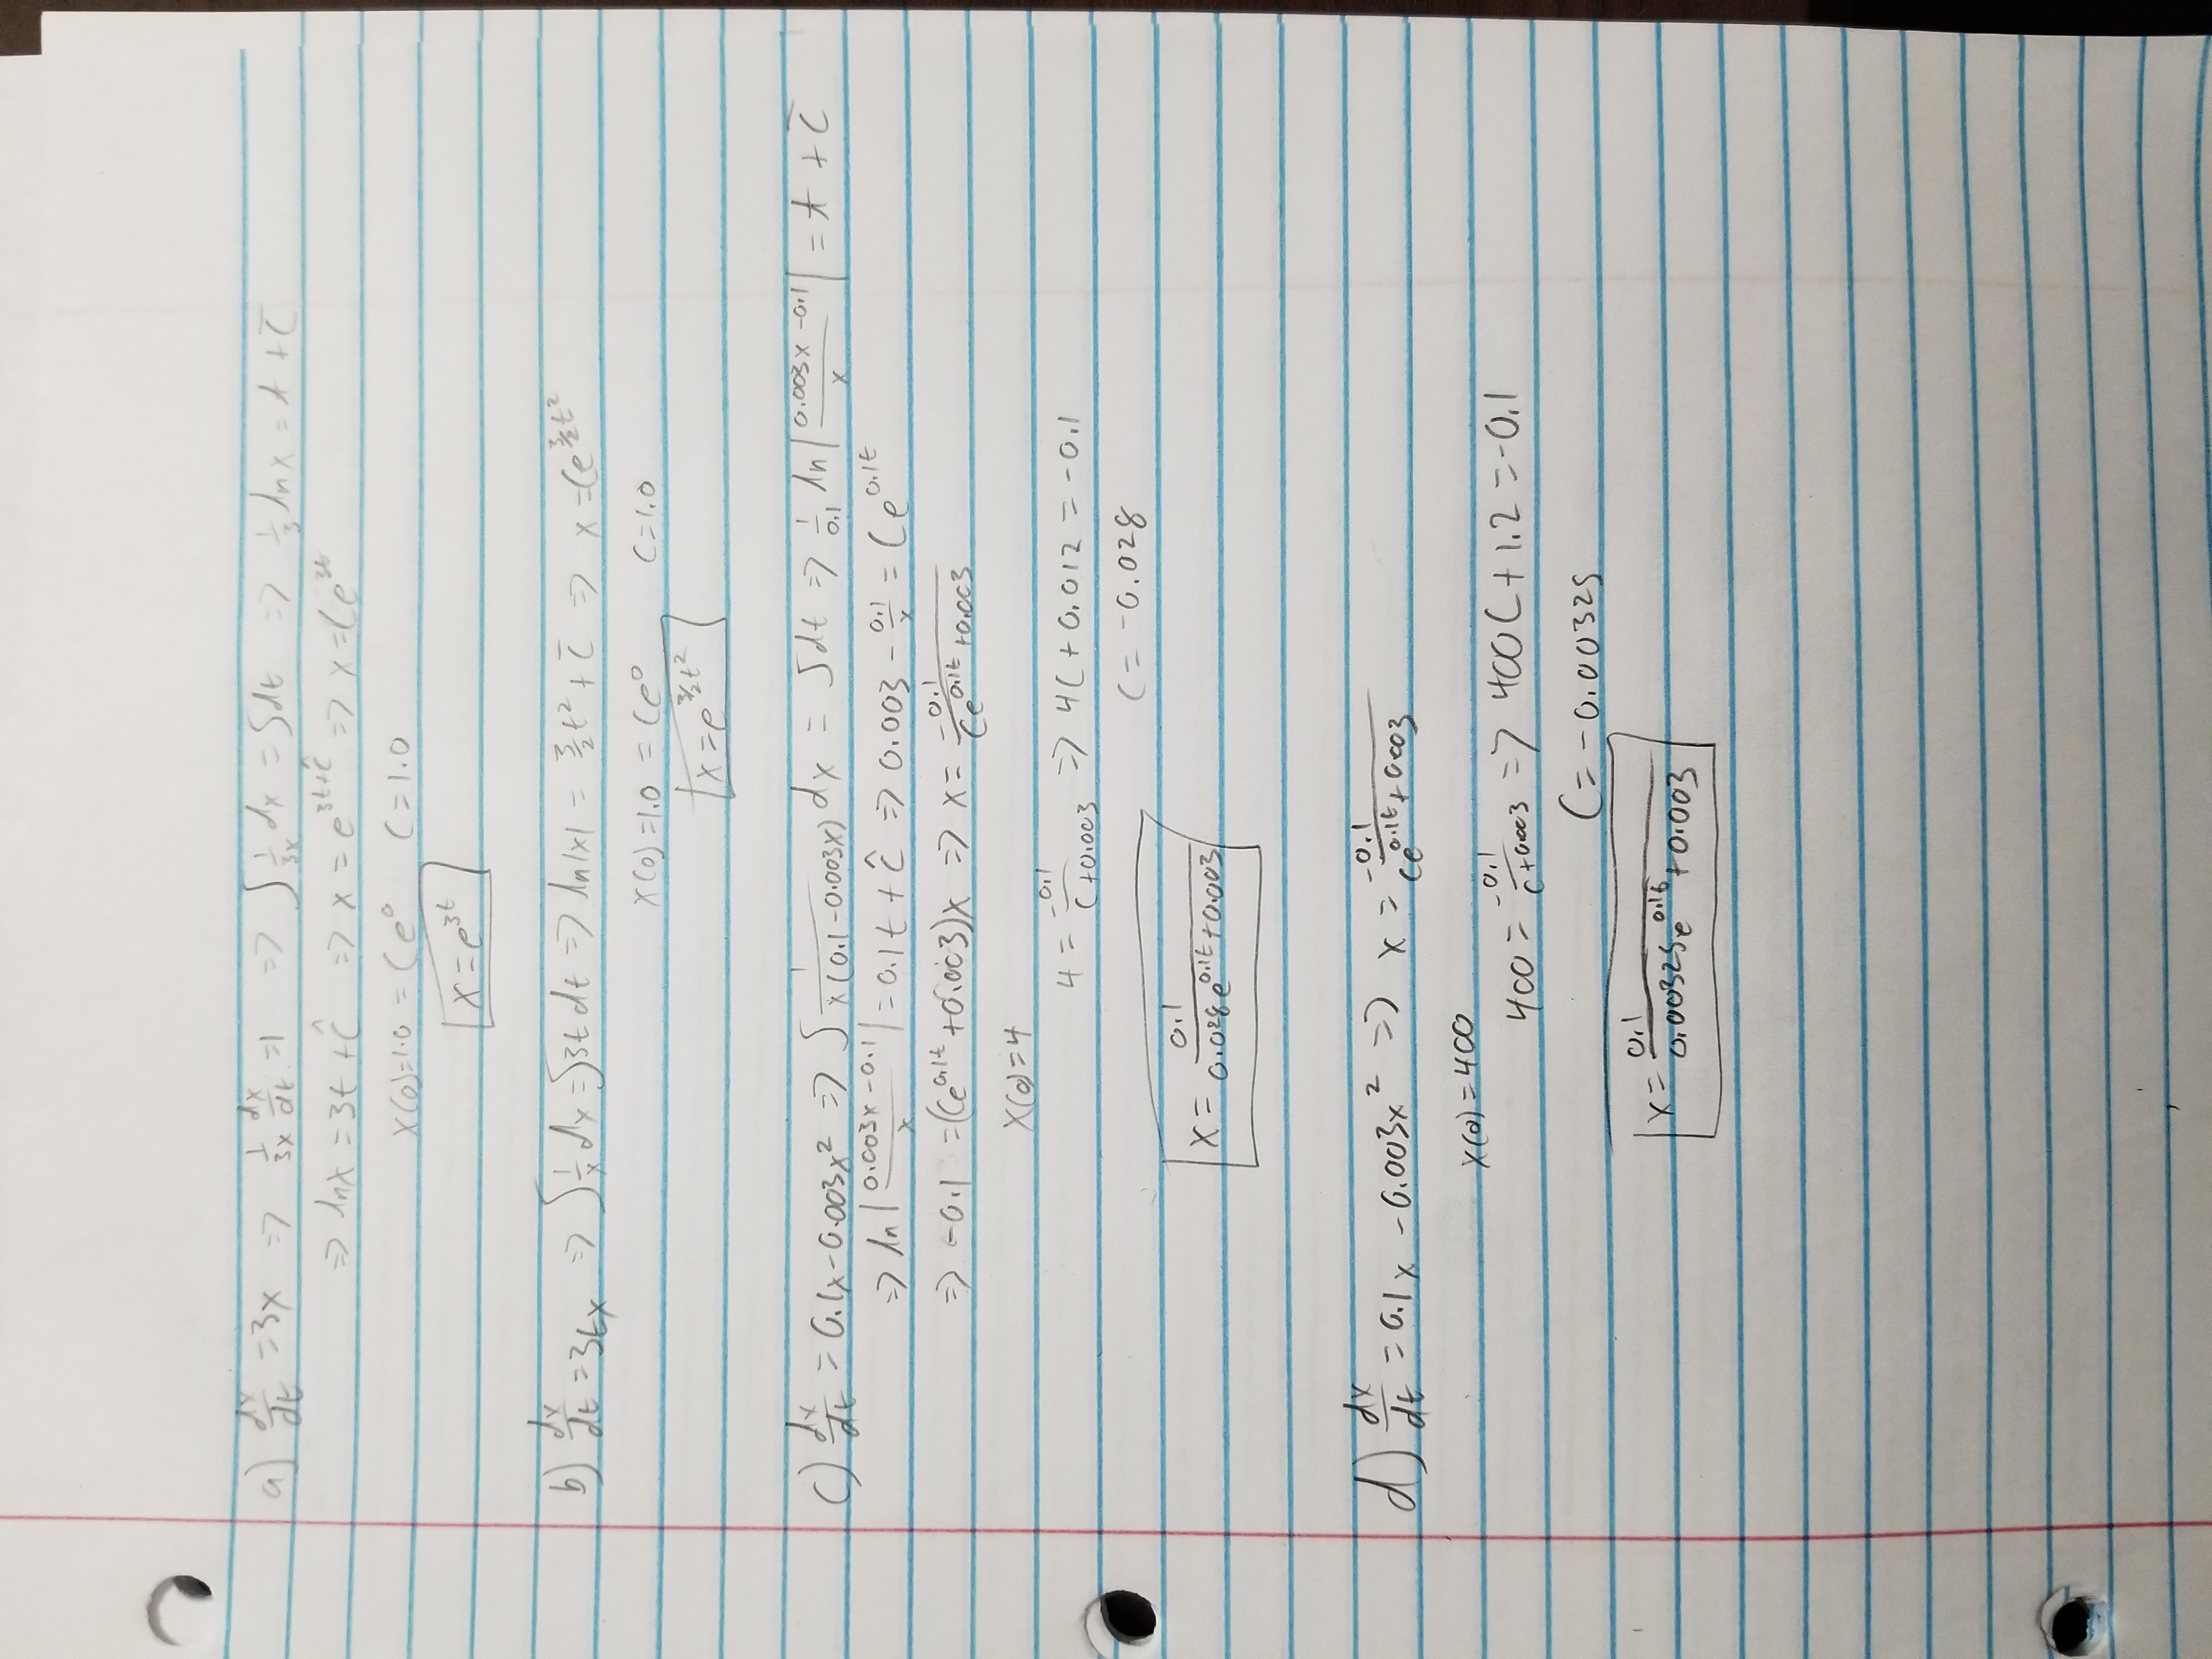 a) dx/dt = 3x => 1/3x dx/dt = 1 => ∫ 1/3x dx = ∫dt => 1/3 ln x = t + C̄
=> ln x = 3t + Ĉ => x = e^(3t+Ĉ) => x = Ce^(3t)
x(0) = 1.0 = Ce^0 C = 1.0
x = e^(3t)
b) dx/dt = 3tx => ∫ 1/x dx = ∫3t dt => ln|x| = 3/2 t^2 + C̄ => x = Ce^(3/2 t^2)
x(0) = 1.0 = Ce^0 C = 1.0
x = e^(3/2 t^2)
c) dx/dt = 0.1x - 0.003x^2 => ∫ 1/(x(0.1 - 0.003x)) dx = ∫dt => 1/0.1 ln|(0.003x - 0.1)/x| = t + C̄
=> ln|(0.003x - 0.1)/x| = 0.1t + Ĉ => 0.003 - 0.1/x = Ce^(0.1t)
=> -0.1 = (Ce^(0.1t) + 0.003)x => x = -0.1/(Ce^(0.1t) + 0.003)
x(0) = 4
4 = -0.1/(C + 0.003) => 4C + 0.012 = -0.1
C = -0.028
x = 0.1/(0.028e^(0.1t) + 0.003)
d) dx/dt = 0.1x - 0.003x^2 => x = -0.1/(Ce^(0.1t) + 0.003)
x(0) = 400
400 = -0.1/(C + 0.003) => 400C + 1.2 = -0.1
C = -0.00325
x = 0.1/(0.00325e^(0.1t) + 0.003)